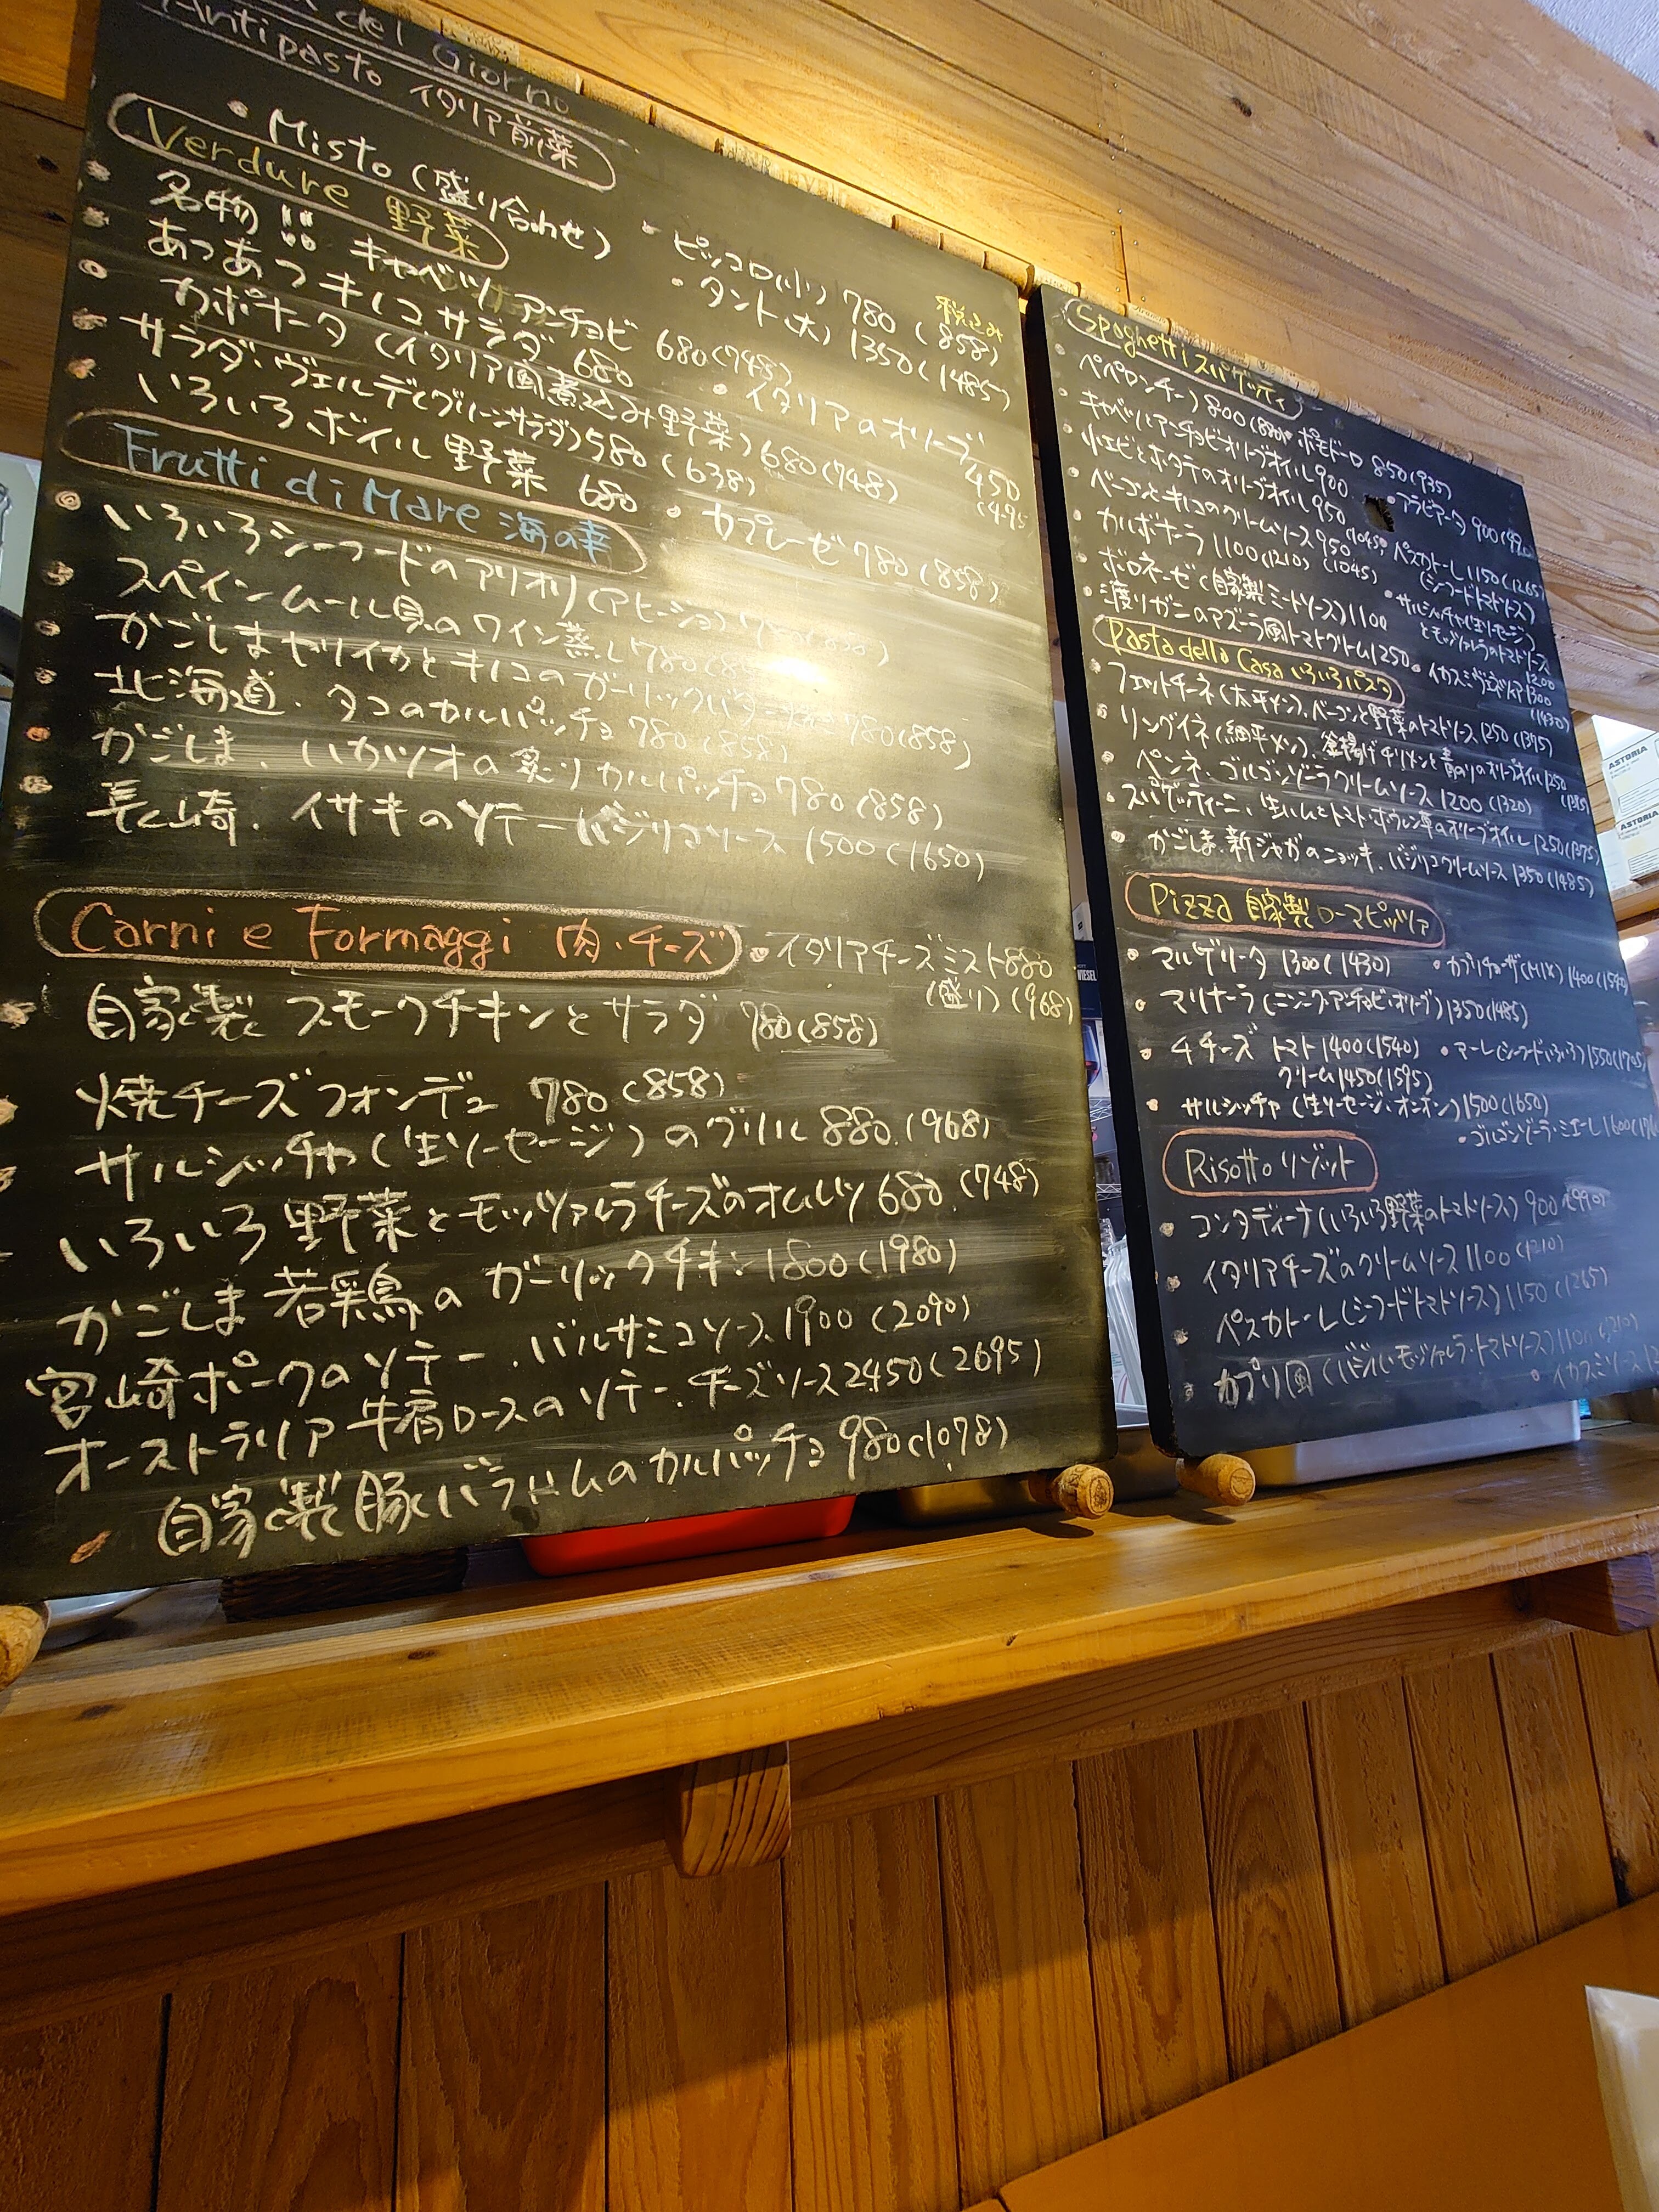 del Giorno
Antipasto イタリア前菜
・Misto (盛り合わせ) ・ピッコロ(小) 780 (858) 税込み
・タント(大) 1350 (1485)
Verdure 野菜
・名物!! キャベツアンチョビ 680 (748)
・あつあつキノコサラダ 680 ・イタリアのオリーブ 450 (495
・カポナータ (イタリア風煮込み野菜) 680 (748)
・サラダ・ヴェルデ(グリーンサラダ) 580 (638)
・いろいろボイル野菜 680 ・カプレーゼ 780 (858)
Frutti di Mare 海の幸
・いろいろシーフードのアリオリ (アヒージョ)
・スペインムール貝のワイン蒸し 780
・かごしまヤリイカとキノコのガーリックバター 780 (858)
・北海道、タコのカルパッチョ 780 (858)
・かごしま、いかツオの炙りカルパッチョ 780 (858)
・長崎、イサキのソテー バジリコソース 1500 (1650)
Carni e Formaggi 肉・チーズ ・イタリアチーズミスト 880
(盛り) (968)
・自家製スモークチキンとサラダ 780 (858)
・焼チーズフォンデュ 780 (858)
・サルシッチャ (生ソーセージ) のグリル 880 (968)
いろいろ野菜とモッツァレラチーズのオムレツ 680 (748)
かごしま若鶏のガーリックチキン 1800 (1980)
宮崎ポークのソテー、バルサミコソース 1900 (2090)
オーストラリア牛肩ロースのソテー、チーズソース 2450 (2695)
・自家製豚バラハムのカルパッチョ 980 (1078)
Spaghetti スパゲッティ
・ペペロンチーノ 800 (880) ・ポモドーロ 850 (935)
・キャベツアンチョビオリーブオイル 900 ・アラビアータ 900
・小エビとホタテのオリーブオイル 950 (1045) ・ペスカトーレ 1150 (1265)
(シーフードトマトソース)
・ベーコンとキノコのクリームソース 950 (1045)
・カルボナーラ 1100 (1210) ・サルシッチャ(生ソーセージ)
とモッツァレラのトマトソース 1200
・ボロネーゼ (自家製ミートソース) 1100
・渡りガニのアズーラ風トマトクリーム 1250 ・イカスミヴェネツィア 1300 (1430)
Pasta della Casa いろいろパスタ
・フェットチーネ(太平メン)、ベーコンと野菜のトマトソース 1250 (1375)
・リングイネ(細平メン)、釜揚げチリメンと青のりのオリーブオイル 1250
・ペンネ、ゴルゴンゾーラクリームソース 1200 (1320)
・スパゲッティーニ、生ハムとトマト・ホウレン草のオリーブオイル 1250 (1375)
・かごしま、新ジャガのニョッキ、バジリコクリームソース 1350 (1485)
Pizza 自家製ローマピッツァ
・マルゲリータ 1300 (1430) ・カプリチョーザ(MIX) 1400 (1540
・マリナーラ (ニンニク・アンチョビ・オリーブ) 1350 (1485)
・4チーズ トマト 1400 (1540) ・マーレ(シーフードいろいろ) 1550 (1705
クリーム 1450 (1595)
・サルシッチャ (生ソーセージ・オニオン) 1500 (1650)
・ゴルゴンゾーラ・ミエーレ 1600
Risotto リゾット
・コンタディーナ (いろいろ野菜のトマトソース) 900 (990)
・イタリアチーズのクリームソース 1100 (1210)
・ペスカトーレ (シーフードトマトソース) 1150 (1265)
・カプリ風 (バジル・モッツァレラ・トマトソース) 1100 (1210)
・イカスミソース
ASTORIA
ASTORIA